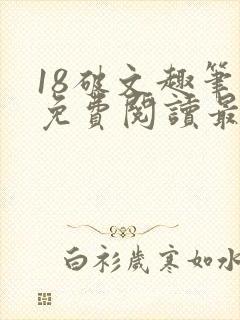 18破文趣筆
免費閱讀最
白衫歲寒如水